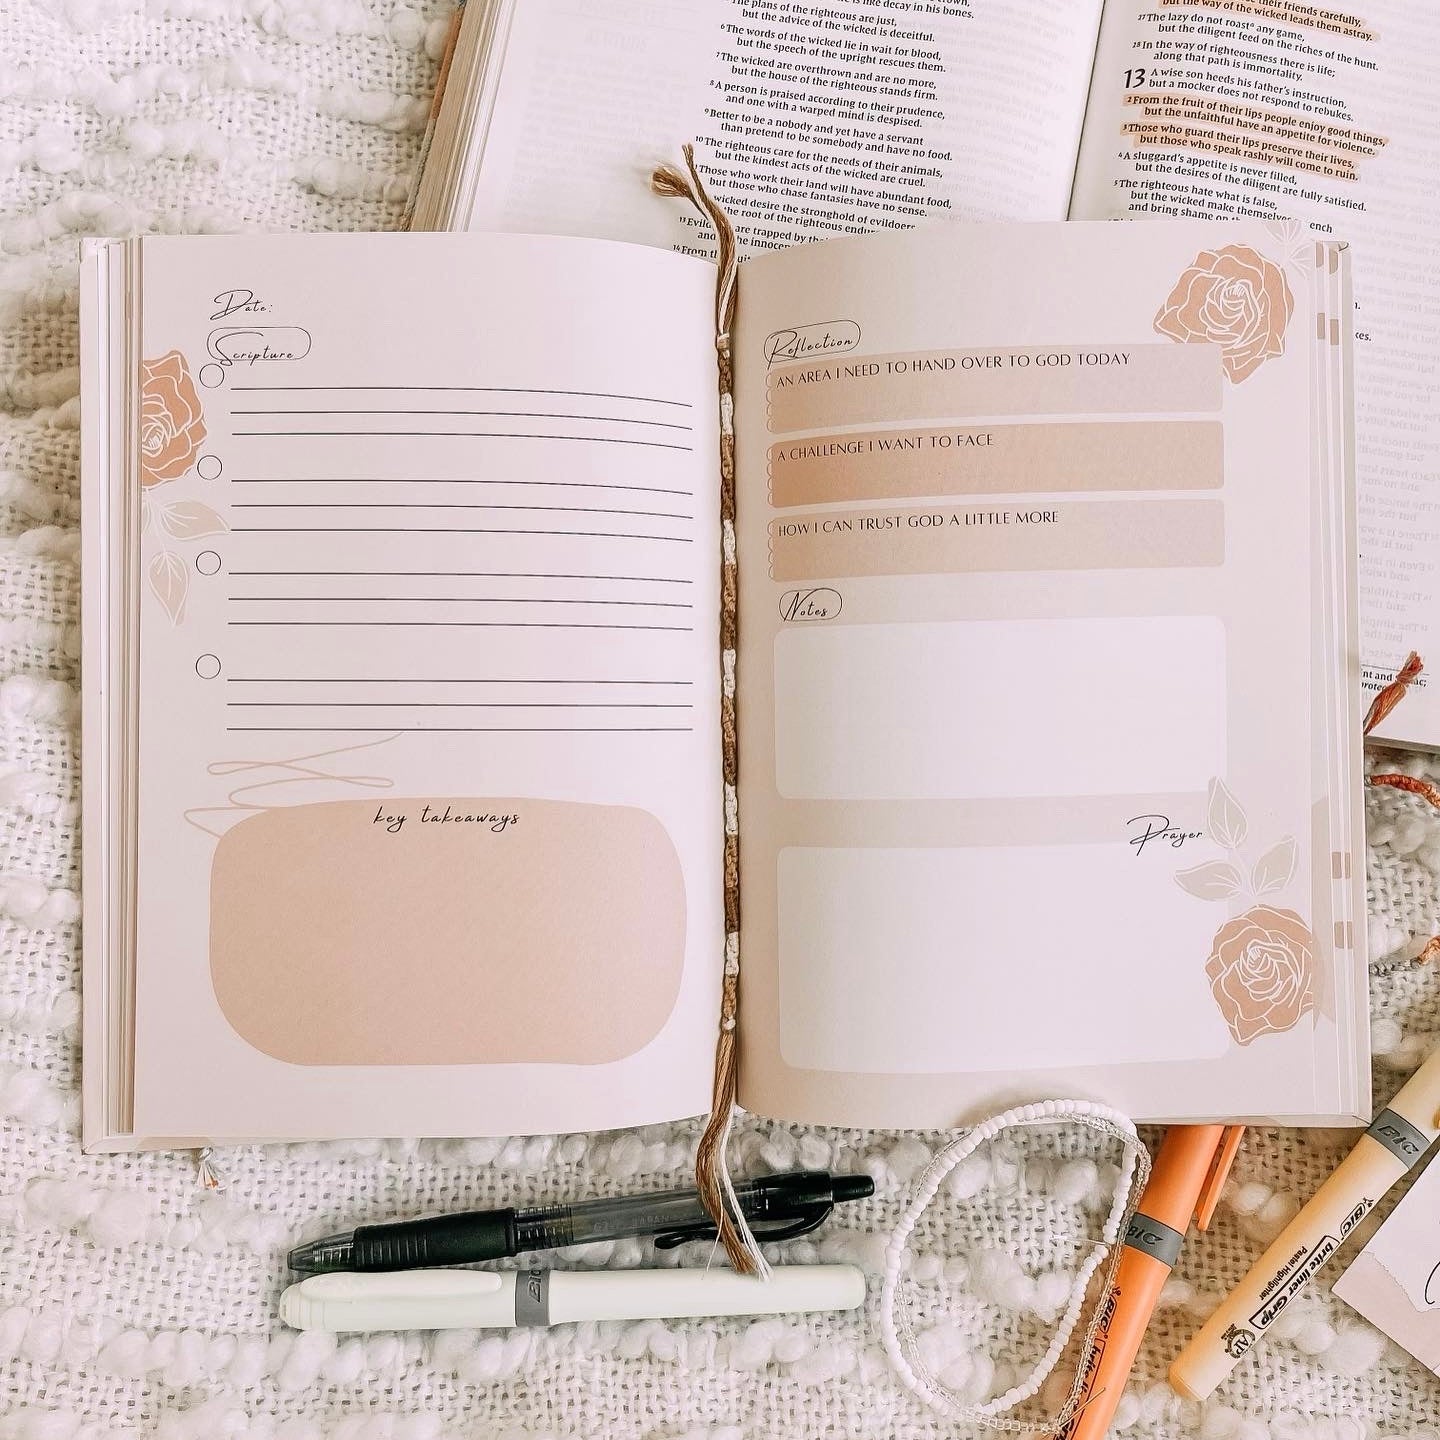 is like decay in his bones.
5 The plans of the righteous are just,
but the advice of the wicked is deceitful.
6 The words of the wicked lie in wait for blood,
but the speech of the upright rescues them.
7 The wicked are overthrown and are no more,
but the house of the righteous stands firm.
8 A person is praised according to their prudence,
and one with a warped mind is despised.
9 Better to be a nobody and yet have a servant
than pretend to be somebody and have no food.
10 The righteous care for the needs of their animals,
but the kindest acts of the wicked are cruel.
Those who work their land will have abundant food,
but those who chase fantasies have no sense.
wicked desire the stronghold of evildoers,
the root of the righteous
13 are trapped by
the innocent
14 From
their friends carefully,
but the way of the wicked leads them astray.
27 The lazy do not roast a any game,
but the diligent feed on the riches of the hunt.
28 In the way of righteousness there is life;
along that path is immortality.
13 A wise son heeds his father's instruction,
but a mocker does not respond to rebukes.
2 From the fruit of their lips people enjoy good things,
but the unfaithful have an appetite for violence.
3 Those who guard their lips preserve their lives,
but those who speak rashly will come to ruin.
4 A sluggard's appetite is never filled,
but the desires of the diligent are fully satisfied.
5 The righteous hate what is false,
but the wicked make themselves
and bring shame on
Date:
Scripture
key takeaways
Reflection
AN AREA I NEED TO HAND OVER TO GOD TODAY
A CHALLENGE I WANT TO FACE
HOW I CAN TRUST GOD A LITTLE MORE
Notes
Prayer
BIC
BIC
BIC
BIC brite liner Grip
Pastel Highlighter
AP